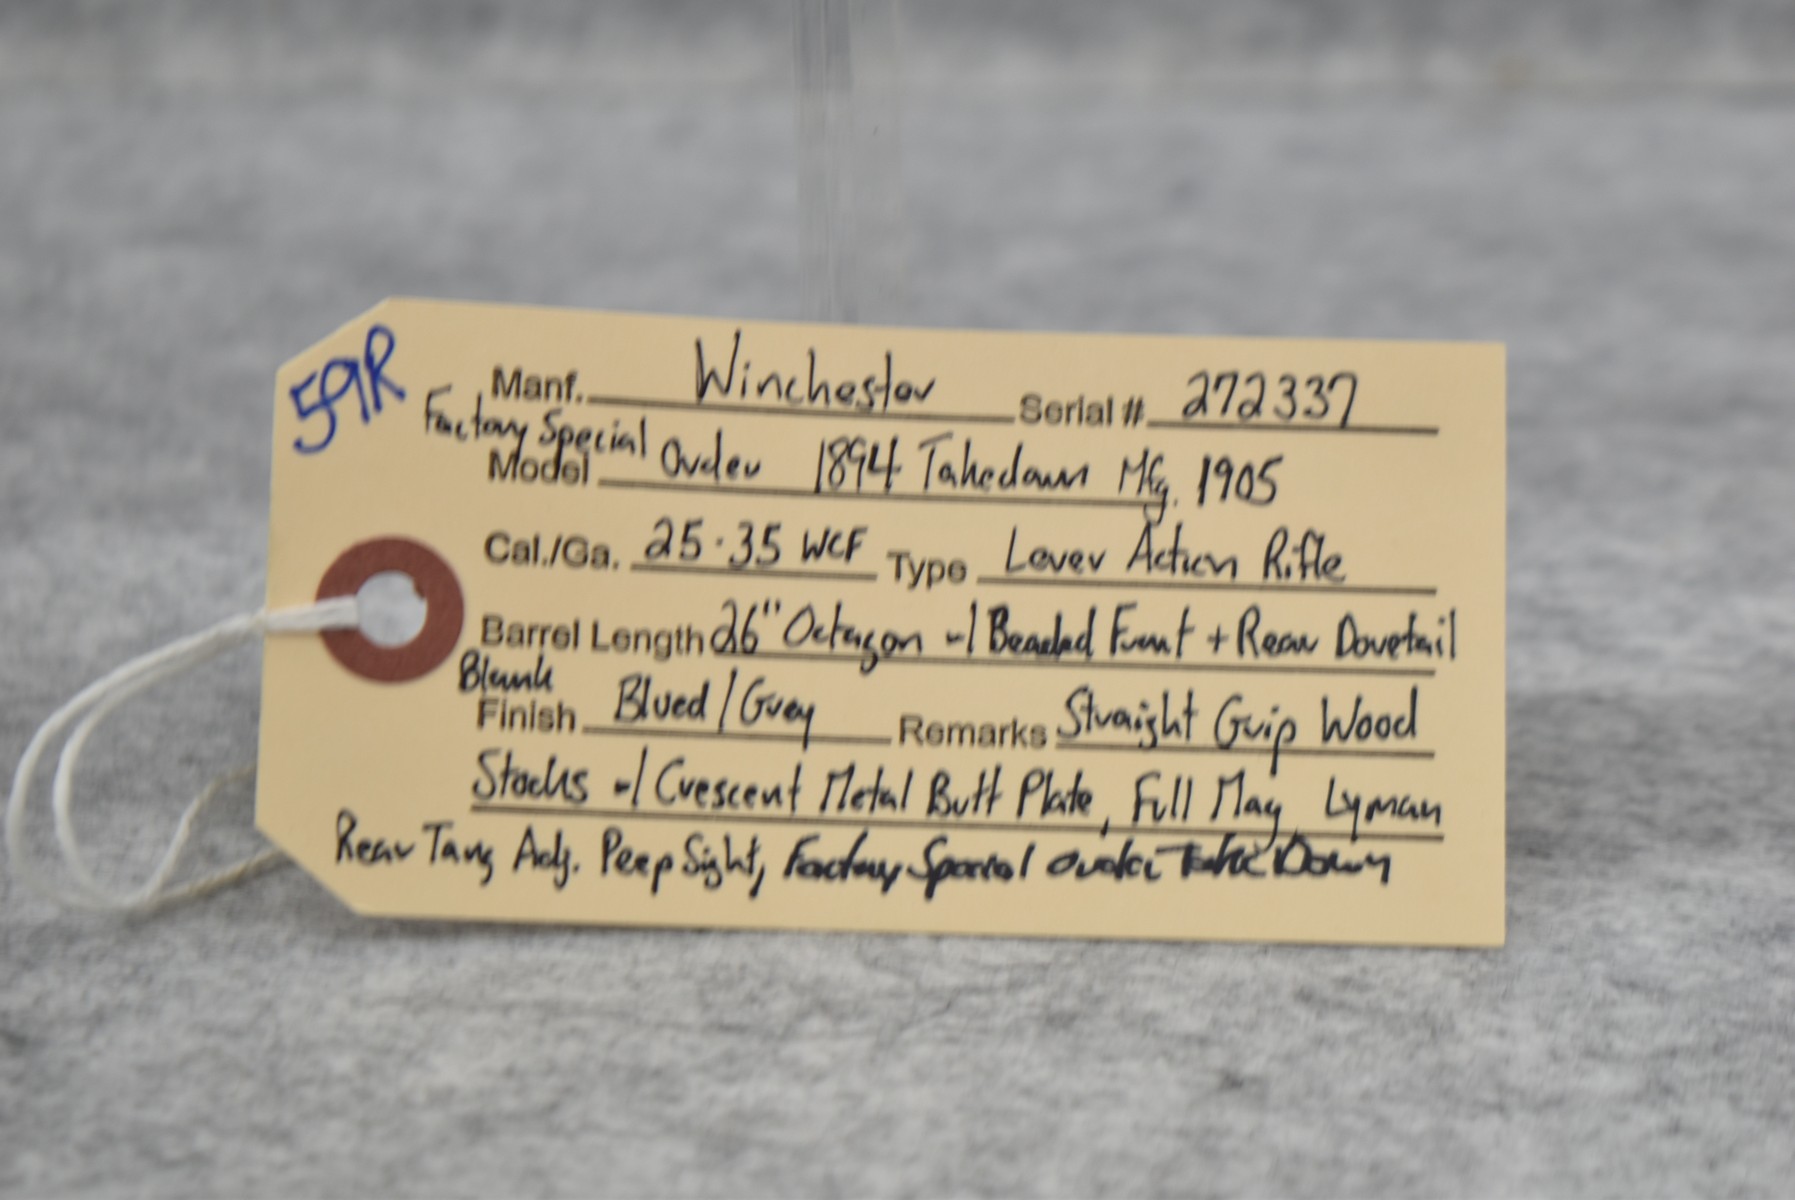 59R
Manf. Winchester Serial # 272337
Factory Special
Model Order 1894 Takedown Mfg. 1905
Cal./Ga. 25·35 WCF Type Lever Action Rifle
Barrel Length 26" Octagon w/ Beaded Front + Rear Dovetail
Blank
Finish Blued/Grey Remarks Straight Grip Wood
Stocks w/ Crescent Metal Butt Plate, Full Mag, Lyman
Rear Tang Adj. Peep Sight, Factory Special Order Take Down